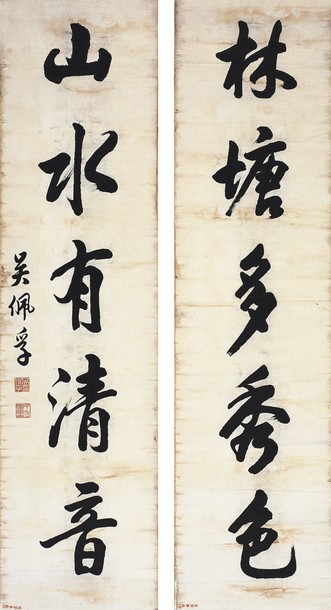 林塘多秀色
山水有清音
吴佩孚